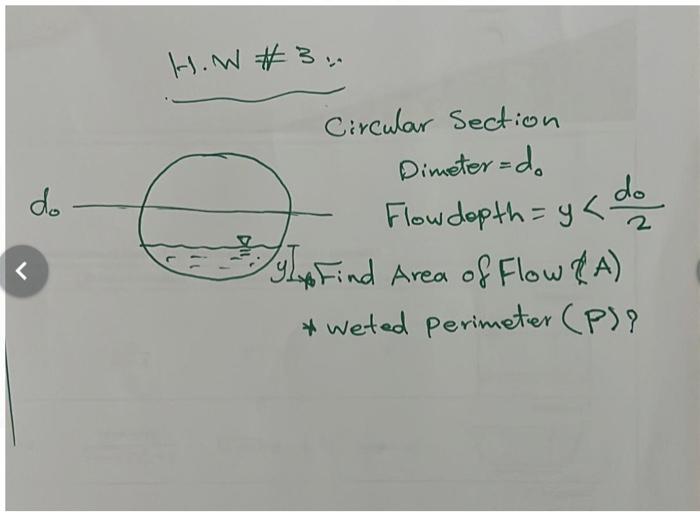 H.W # 3 :.
Circular Section
Dimeter = do
do
Flow depth = y < do/2
y * Find Area of Flow (A)
* weted perimeter (P)?